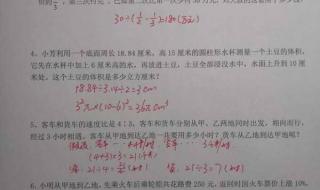 30÷(1/2-1/3)=180(万元)
4、小芳利用一个底面周长 18.84 厘米,高 15 厘米的圆柱形水杯测量一个土豆的体积,
它先在水杯中加上 6 厘米高的水,再放进土豆,土豆全部浸没水中,水面上升到 10 厘
米处,这个土豆的体积是多少立方厘米?
18.84÷3.14÷2=3cm
3²π×(10-6)=36π cm³
5、客车和货车的速度比是 4∶3,客车和货车分别从甲、乙两地同时出发,相向而行,
经过 3 小时相遇,客车从甲地到达乙地一共要用多少小时?货车从乙地到达甲地呢?
(4+3)×3=21(份)
客:21÷4=21/4(小时)
货:21÷3=7(小时)
6、小明从甲地到乙地,先乘火车后乘轮船共花路费 250 元,返回时因火车票价上涨 10%